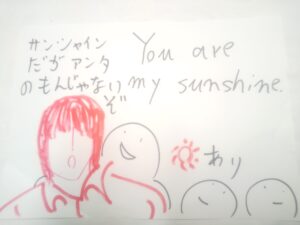 サンシャイン
だがアンタ
のもんじゃないぞ
You are
my sunshine.
あり